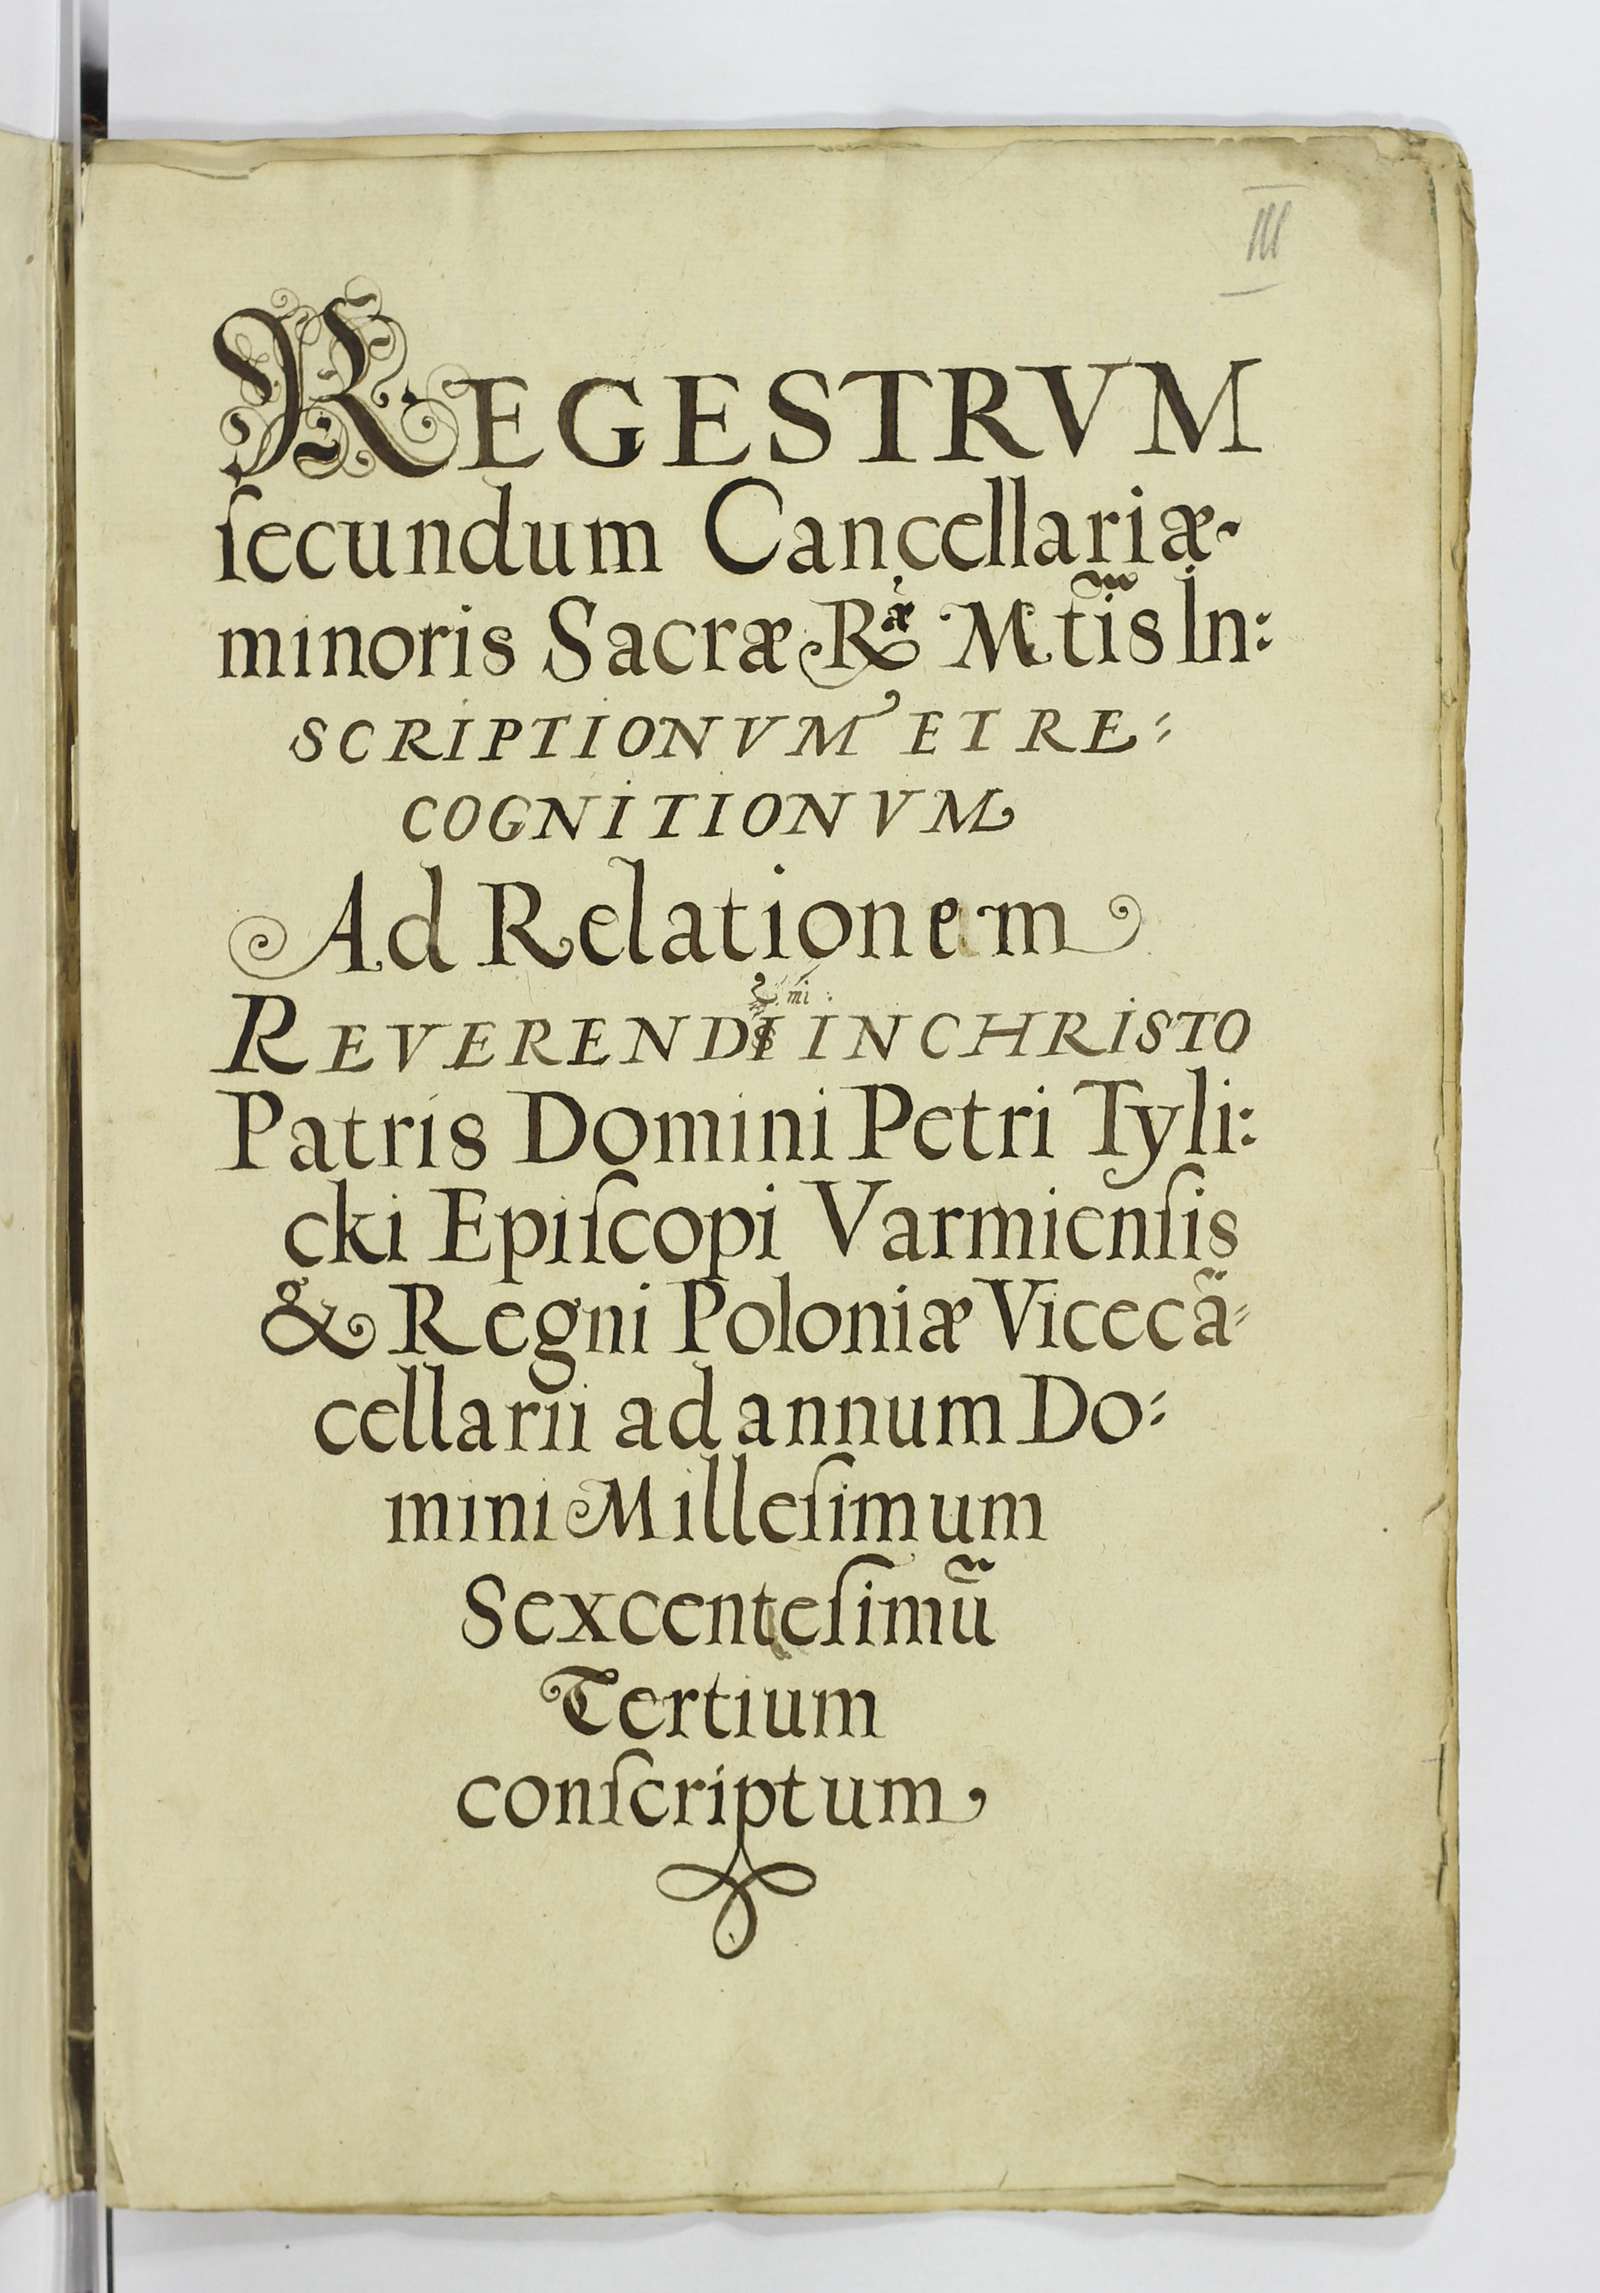 III
REGESTRVM
ſecundum Cancellariæ-
minoris Sacræ Rᵃᵉ Mt̃is In:
SCRIPTIONVM ET RE:
COGNITIONVM
Ad Relationem
REVERENDI mi IN CHRISTO
Patris Domini Petri Tyli:
cki Epiſcopi Varmienſis
& Regni Poloniæ Vicecã-
cellarii ad annum Do:
mini Milleſimum
Sexcenteſimũ
Tertium
conſcriptum